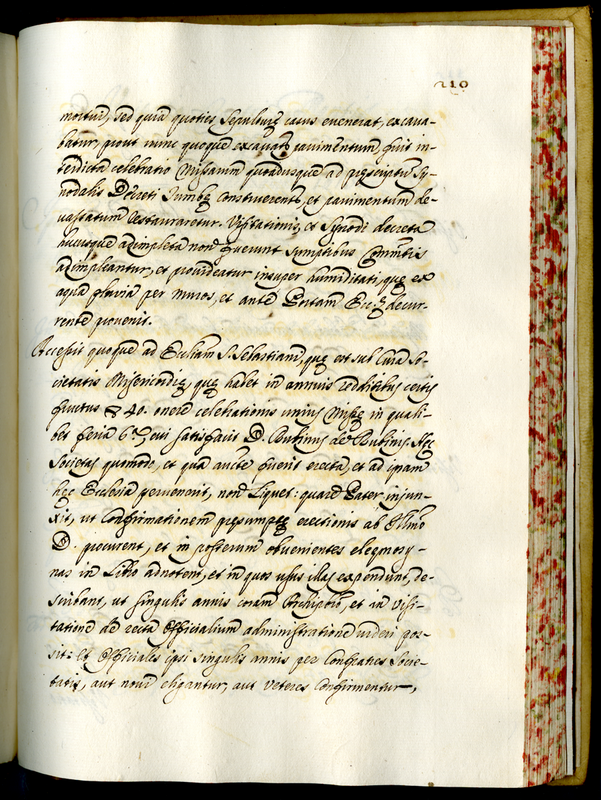 210
mortui, sed quia quoties sepulturę casus euenerat, excaua-
batur, prout nunc quoque excauat pauimentum, fuit in-
terdicta celebratio Missarum quousque ad pręscriptum Sy-
nodalis Decreti Tumbę construerent, et pauimentum de-
uastatum restauraretur. Visitationis, et Synodi decreta
hucusque adimpleta non fuerunt sumptibus Com̃tis
adimpleantur, et prouideatur insuper humiditati, quę ex
aqua pluuia per muros, et ante Portam Eccę decur-
rente prouenit.
Accessit quoque ad Eccliam S. Sebastiani, quę est sub Cura So-
cietatis Misericordię, quę habet in annuis redditibus certis
fructus 40. onere celebrationis unius Missę in quali-
bet feria 6.ª cui satisfacit D. Rubinus de Rubinis. Hęc
Societas quomodo, et qua aucte fuerit erecta, et ad ipsam
hęc Ecclesia peruenerit, non liquet: quare Pater iniun-
xit, ut Confirmationem pręsumptę erectionis ab Illmo
D. procurent, et in posterum obuenientes eleęmosy-
nas in Libro adnotent, et in quos usus illas expendunt, de-
scribant, ut singulis annis coram Archipbro, et in Visi-
tatione de recta Officialium administratione uideri pos-
sit: et Officiales ipsi singulis annis per Confratres Socie-
tatis, aut noui eligantur, aut veteres Confirmentur,